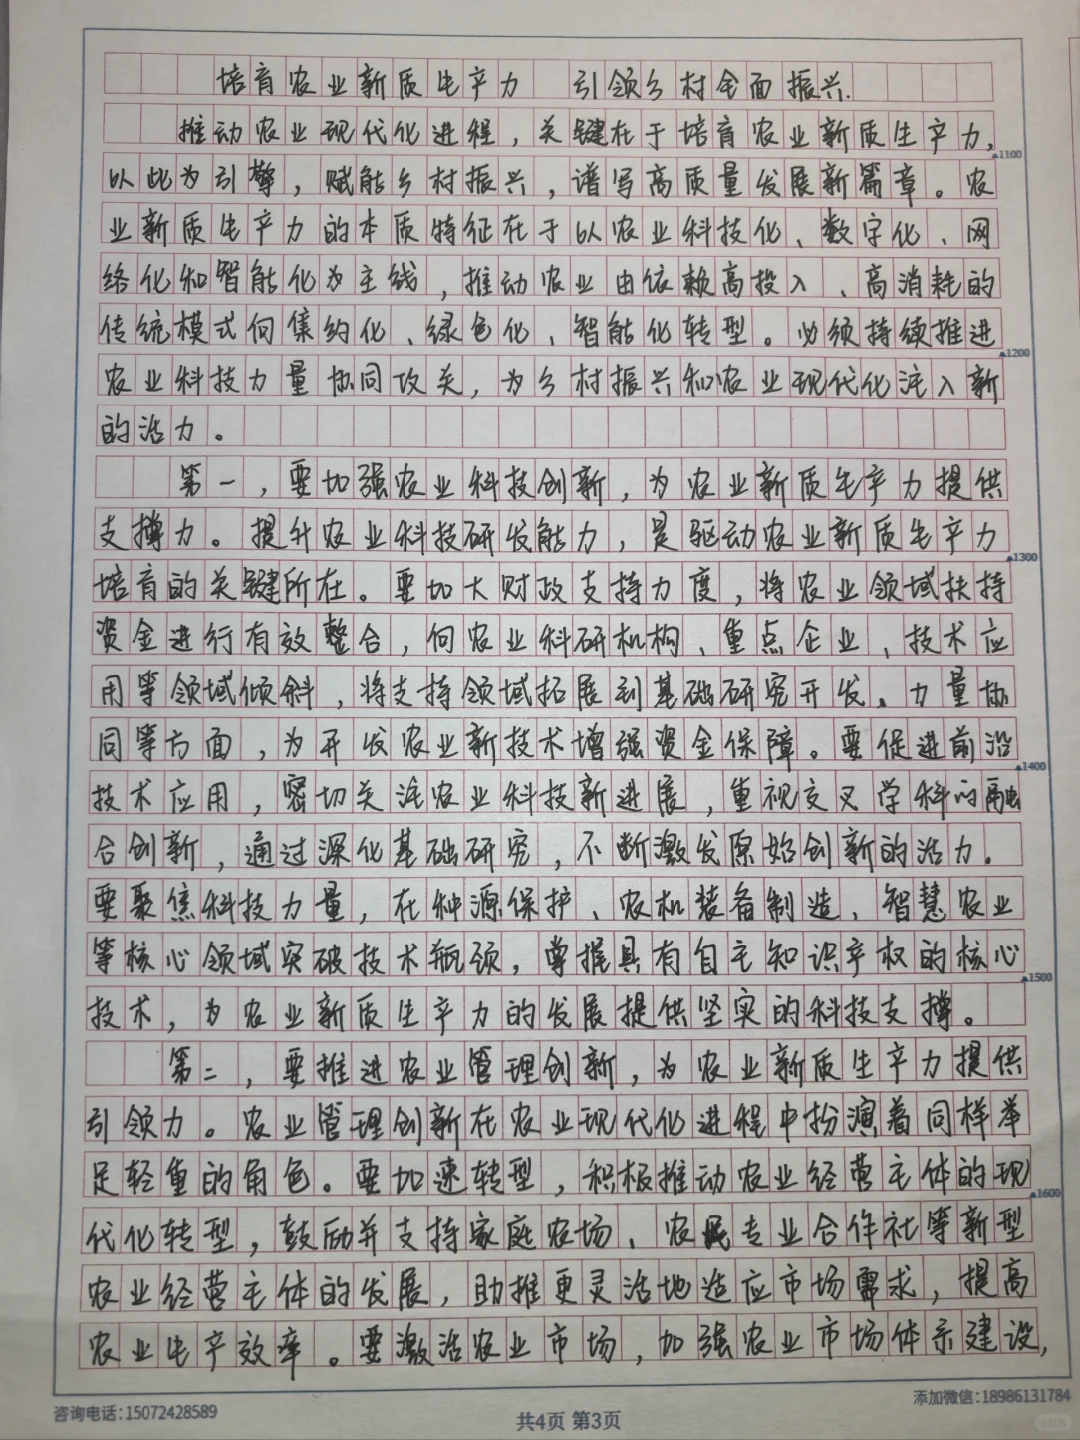 培育农业新质生产力 引领乡村全面振兴.
推动农业现代化进程，关键在于培育农业新质生产力，
1100
以此为引擎，赋能乡村振兴，谱写高质量发展新篇章。农
业新质生产力的本质特征在于以农业科技化、数字化、网
络化和智能化为主线，推动农业由依赖高投入、高消耗的
传统模式向集约化、绿色化、智能化转型。必须持续推进
1200
农业科技力量协同攻关，为乡村振兴和农业现代化注入新
的活力。
第一，要加强农业科技创新，为农业新质生产力提供
支撑力。提升农业科技研发能力，是驱动农业新质生产力
1300
培育的关键所在。要加大财政支持力度，将农业领域扶持
资金进行有效整合，向农业科研机构、重点企业、技术应
用等领域倾斜，将支持领域拓展到基础研究开发、力量协
同等方面，为开发农业新技术增强资金保障。要促进前沿
1400
技术应用，密切关注农业科技新进展，重视交叉学科的融
合创新，通过深化基础研究，不断激发原始创新的活力。
要聚焦科技力量，在种源保护、农机装备制造、智慧农业
等核心领域突破技术瓶颈，掌握具有自主知识产权的核心
1500
技术，为农业新质生产力的发展提供坚实的科技支撑。
第二，要推进农业管理创新，为农业新质生产力提供
引领力。农业管理创新在农业现代化进程中扮演着同样举
足轻重的角色。要加速转型，积极推动农业经营主体的现
1600
代化转型，鼓励并支持家庭农场、农民专业合作社等新型
农业经营主体的发展，助推更灵活地适应市场需求，提高
农业生产效率。要激活农业市场，加强农业市场体系建设，
咨询电话：15072428589
共4页 第3页
添加微信：18986131784